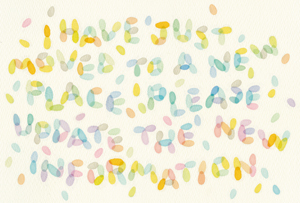 I HAVE JUST
MOVED TO A NEW
PLACE PLEASE
UPDATE THE NEW
INFORMATION